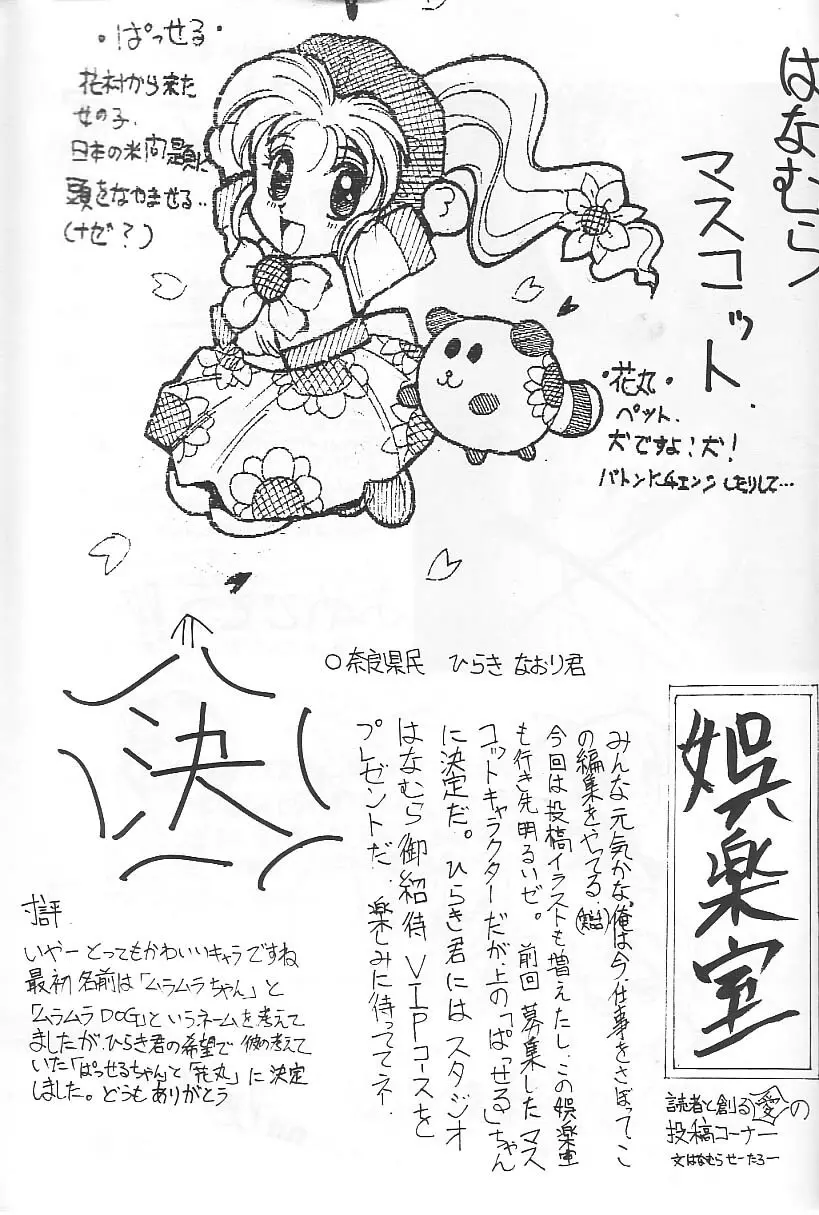 はなむら
マスコット.
・ぱっせる・
花村から来た
女の子.
日本の米問題に
頭をなやませる..
(ナゼ?)
・花丸・
ペット.
犬ですよ!犬!
バトンにチェンジしたりして…
決
○奈良県民 ひらき なおり君
娯楽室
読者と創る愛の
投稿コーナー
文はなむらせーたろー
みんな元気かな、俺は今、仕事をさぼってこ
の編集をやってる。
今回は投稿イラストも増えたし、この娯楽室
も行き先明るいゼ。前回募集したマス
コットキャラクターだが、上の「ぱっせる」ちゃん
に決定だ。ひらき君にはスタジオ
はなむら御紹待VIPコースを
プレゼントだ。楽しみに待っててネ.
寸評
いやーとってもかわいいキャラですね
最初名前は「ムラムラちゃん」と
「ムラムラDOG」というネームを考えて
ましたが、ひらき君の希望で彼の考えて
いた「ぱっせるちゃん」と「花丸」に決定
しました。どうもありがとう